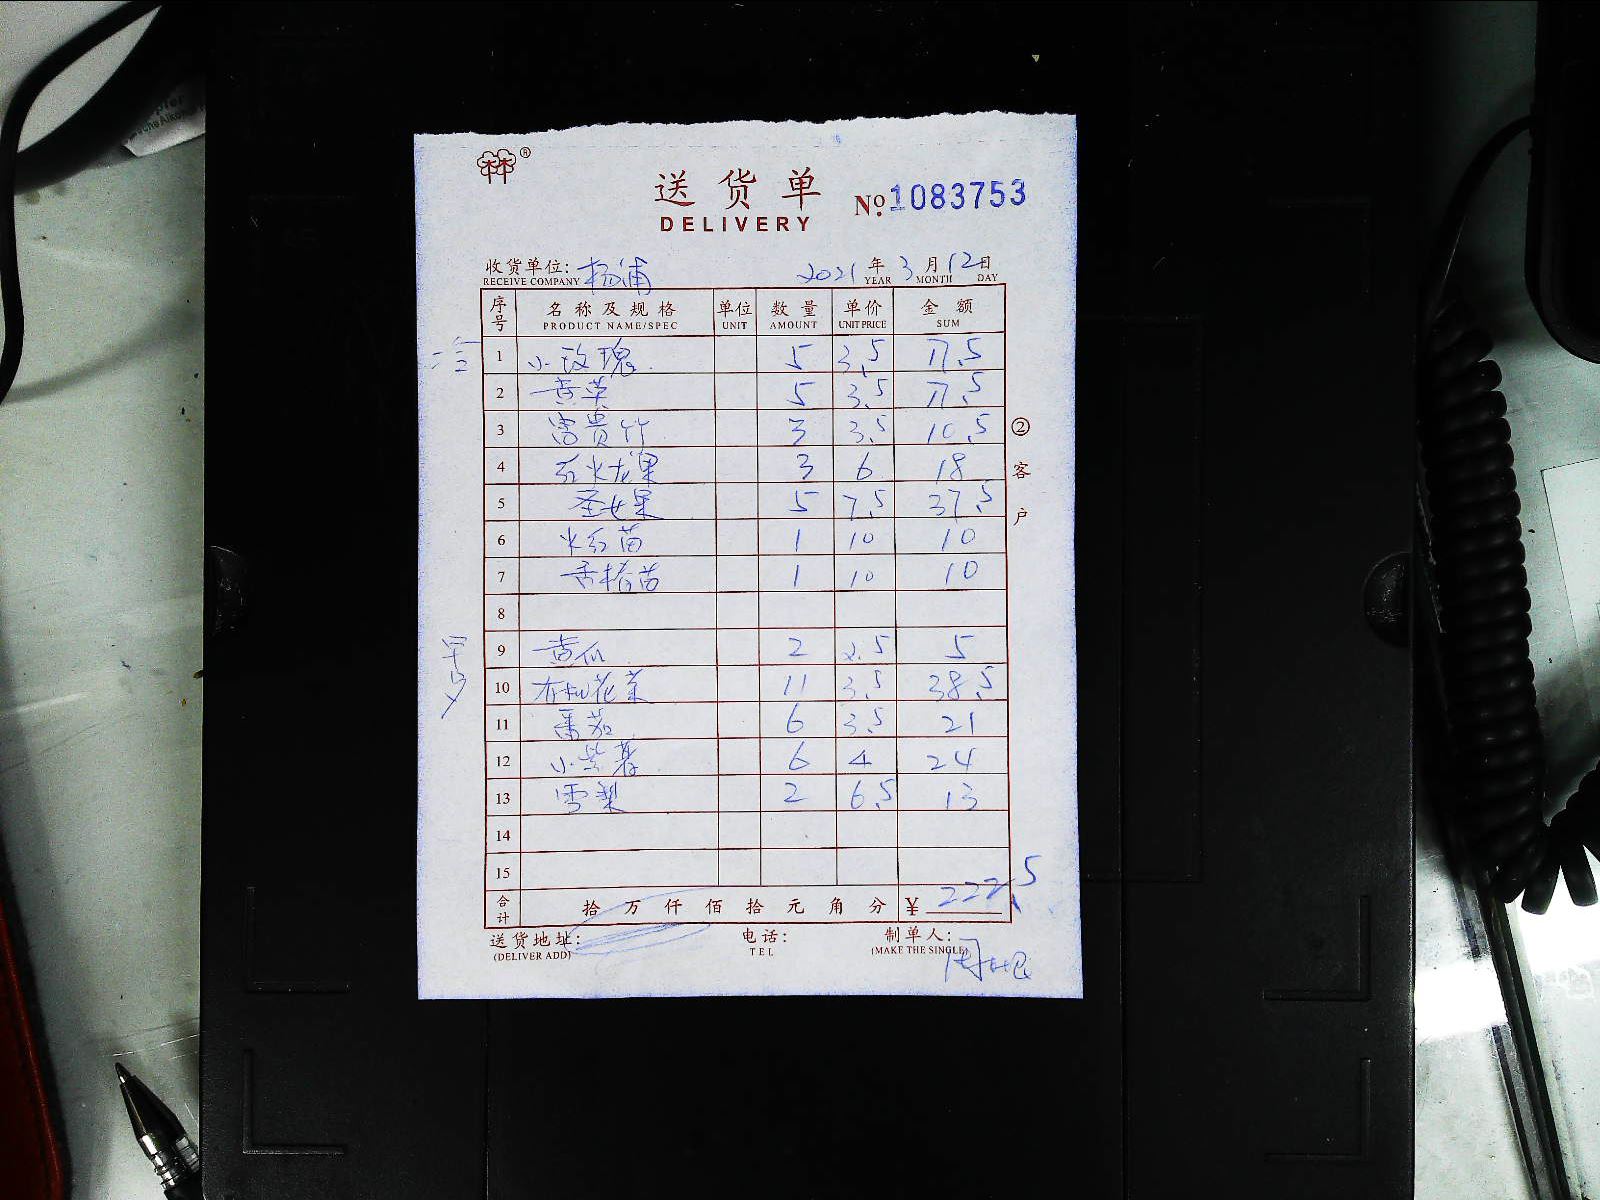 林®
送货单
DELIVERY
№ 1083753
收货单位: 杨浦 2021 年 3 月 12 日
RECEIVE COMPANY YEAR MONTH DAY
序号 名称及规格 单位 数量 单价 金额
PRODUCT NAME/SPEC UNIT AMOUNT UNIT PRICE SUM
1 小玫瑰 5 3.5 17.5
2 黄草 5 3.5 17.5
3 富贵竹 3 3.5 10.5
4 红火龙果 3 6 18
5 圣女果 5 7.5 37.5
6 火红苗 1 10 10
7 香椿苗 1 10 10
8
9 黄瓜 2 2.5 5
10 有机花菜 11 3.5 38.5
11 番茄 6 3.5 21
12 小紫薯 6 4 24
13 雪梨 2 6.5 13
14
15
合计 拾 万 仟 佰 拾 元 角 分 ¥ 222.5
送货地址: 电话: 制单人:
(DELIVER ADD) TEL (MAKE THE SINGLE)
②客户